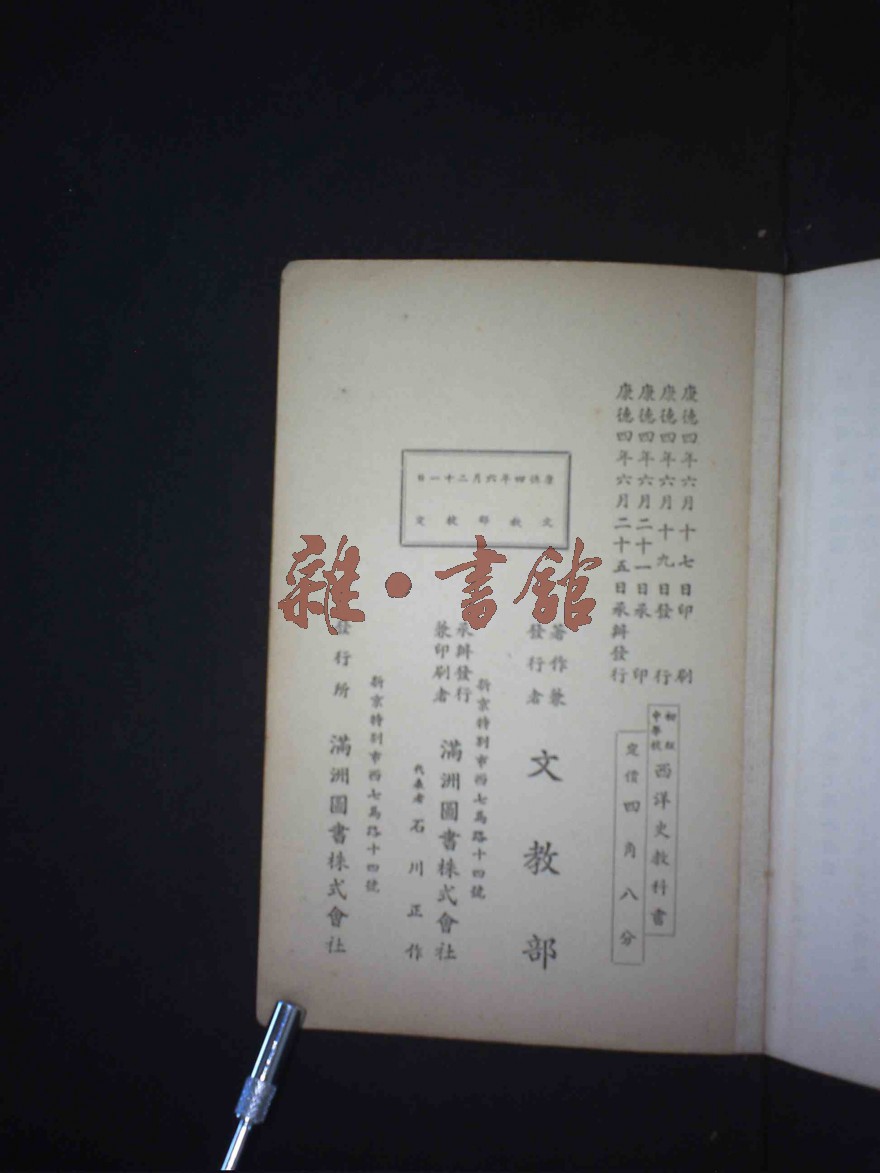 康德四年六月十七日印刷
康德四年六月十九日發行
康德四年六月二十一日承印
康德四年六月二十五日承辦發行
初級中學校 西洋史教科書
定價四角八分
康德四年六月二十一日
文教部檢定
著作兼發行者 文教部
新京特別市西七馬路十四號
承辦發行兼印刷者 滿洲圖書株式會社
代表者 石川正作
新京特別市西七馬路十四號
發行所 滿洲圖書株式會社
雜·書舘